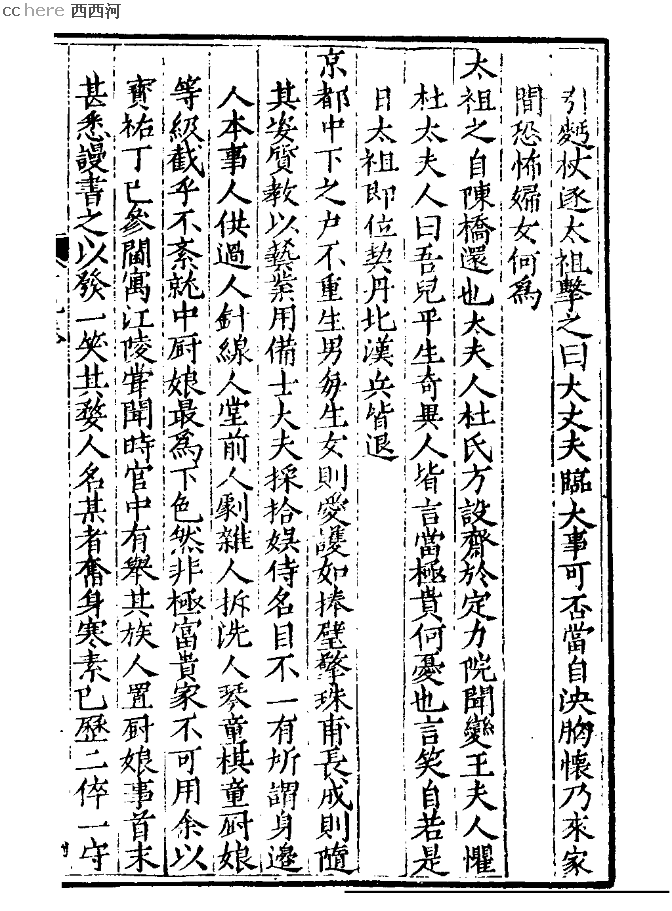 cchere 西西河
引麪杖逐太祖擊之曰大丈夫臨大事可否當自決胸懷乃來家
間恐怖婦女何為
太祖之自陳橋還也太夫人杜氏方設齋於定力院聞變王夫人懼
杜太夫人曰吾兒平生奇異人皆言當極貴何憂也言笑自若是
日太祖即位契丹北漢兵皆退
京都中下之戶不重生男每生女則愛護如捧璧擎珠甫長成則隨
其姿質教以藝業用備士大夫採拾娛侍名目不一有所謂身邊
人本事人供過人針線人堂前人劇雜人拆洗人琴童棋童厨娘
等級截乎不紊就中厨娘最為下色然非極富貴家不可用余以
寶祐丁巳參閫寓江陵嘗聞時官中有舉其族人置厨娘事首末
甚悉謾書之以發一笑其婺人名某者奮身寒素已歷二倅一守